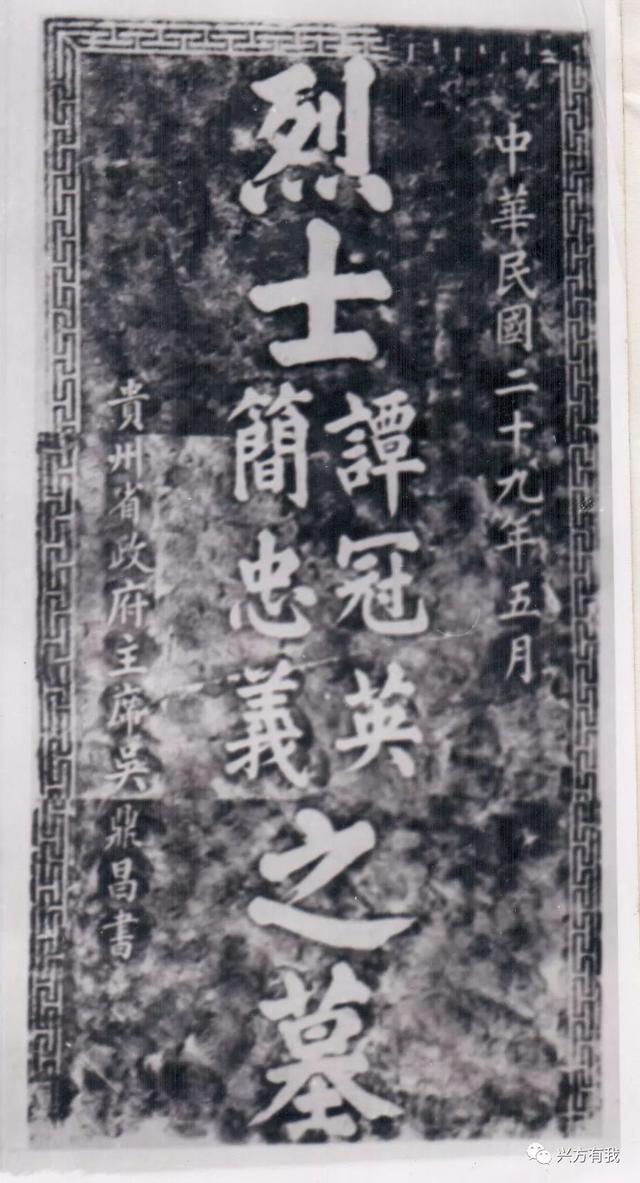 中華民國二十九年五月
烈士
譚冠英
簡忠義
之墓
貴州省政府主席吳鼎昌書
兴方有我